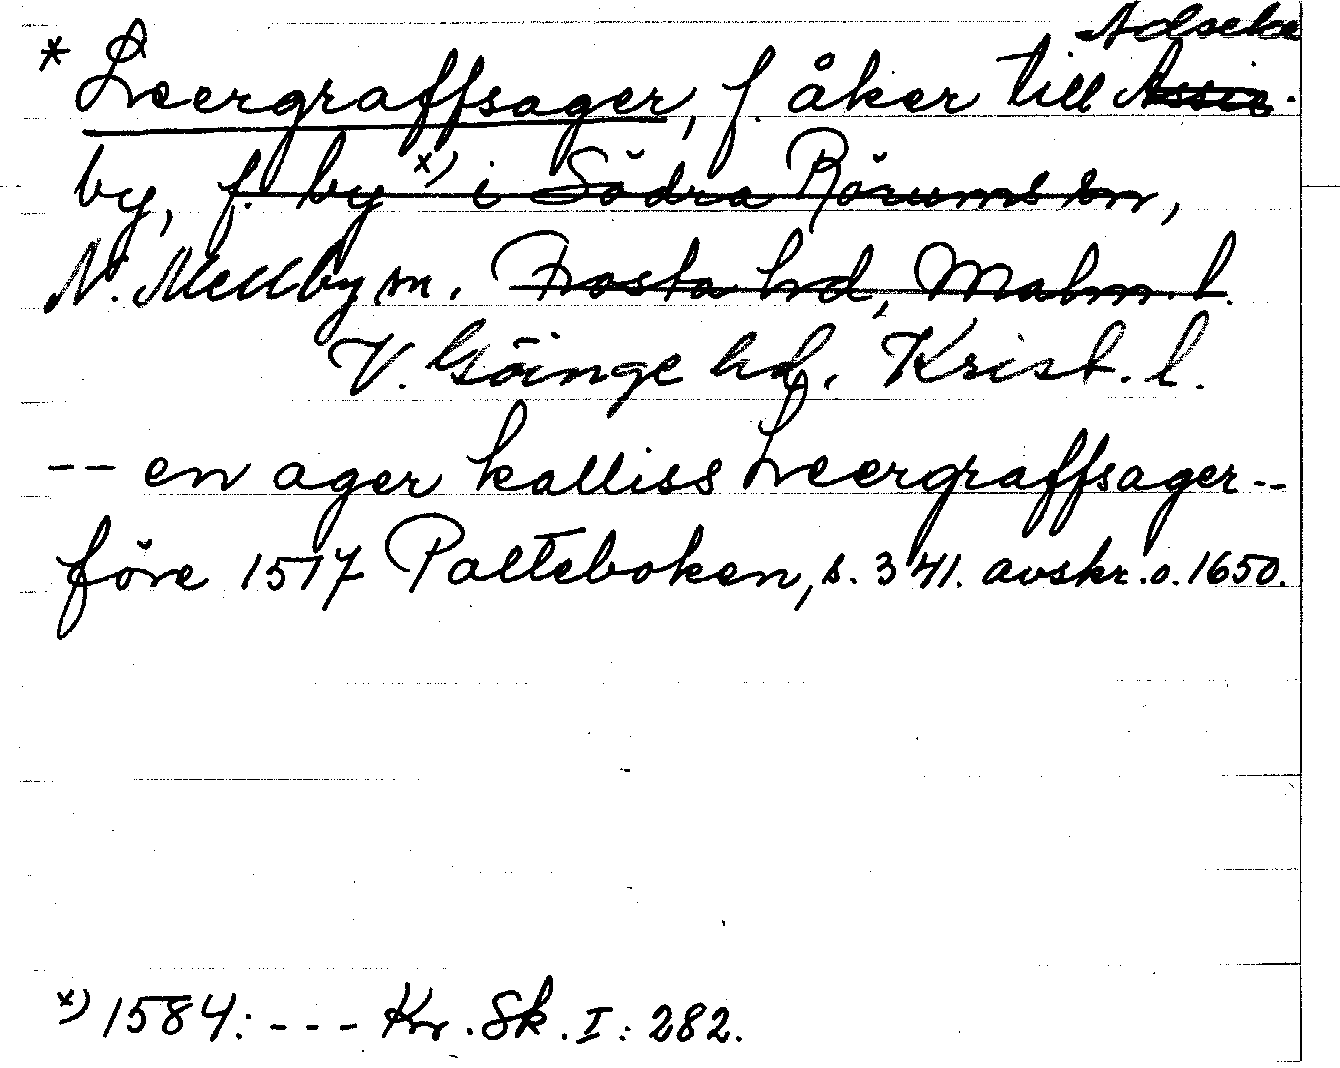 Adseke
* Leergraffsager, f. åker till Assie-
by, f. by x) i Södra Rörums sn,
N. Mellby sn. Frosta hd, Malm. l.
V. Göinge hd. Krist. l.
-- en ager kalliss Leergraffsager --
före 1517 Palteboken, s. 341. avskr. o. 1650.
x) 1584: --- Kr. Sk. I: 282.